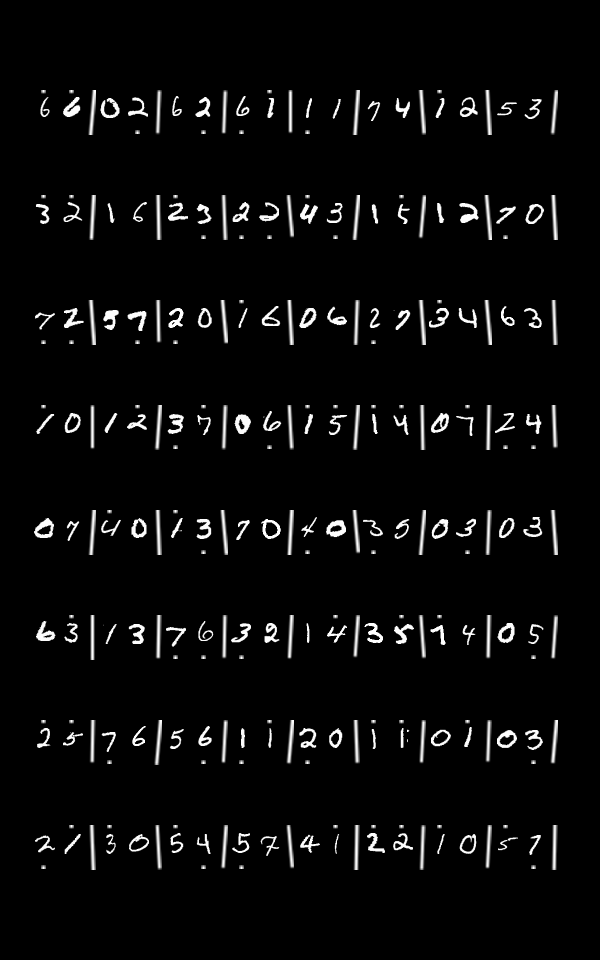 6̇ 6̇ | 0 2̣ | 6 2̣ | 6̣ 1̇ | 1̣ 1 | 7 4 | 1̇ 2 | 5 3 |
3̇ 2̇ | 1 6 | 2̇ 3̣ | 2̣ 2̣ | 4̇ 3̣ | 1 5̇ | 1 2 | 7̣ 0 |
7̣ 2̣ | 5 7̣ | 2̣ 0 | 1̇ 6 | 0 6 | 2̣ 7 | 3̇ 4 | 6 3 |
1̇ 0 | 1 2̇ | 3̣ 7̇ | 0 6̣ | 1̇ 5̇ | 1̇ 4̇ | 0 7̇ | 2̣ 4̣ |
0 7 | 4̇ 0 | 1̇ 3̣ | 7 0 | 4̣ 0 | 3̣ 5 | 0 3̣ | 0 3 |
6 3̇ | 1 3 | 7̣ 6̣ | 3̣ 2 | 1 4̇ | 3 5̇ | 1̇ 4 | 0 5̣ |
2̇ 5̇ | 7̣ 6 | 5 6̣ | 1̣ 1 | 2̣ 0 | 1̇ 1̇ | 0 1̇ | 0 3̣ |
2̣ 1̇ | 3̇ 0 | 5̇ 4̣ | 5̣ 7 | 4 1̇ | 2̇ 2̇ | 1̇ 0 | 5̇ 7̣ |